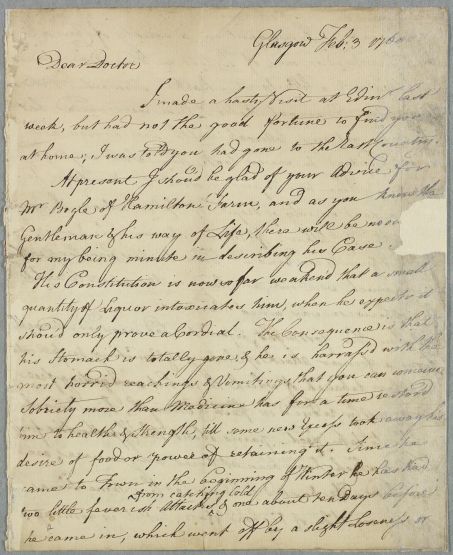 Glasgow Feb: 3 17
Dear Doctor
I made a hasty Visit at Edinr. last
week, but had not the good fortune to find you
at home; I was told you had gone to the East Country.
At present I should be glad of your Advice for
Mr Bogle of Hamilton Farm, and as you know the
Gentleman & his way of Life, there will be no
for my being minute in describing his Case.
His Constitution is now so far weakend that a small
quantity of Liquor intoxicates him, when he expects it
should only prove a Cordial. The Consequence is that
his Stomach is totally gone, & he is harrass'd with the
most horrid reachings & Vomitings that you can conceive
Sobriety more than Medicine has for a time restord
him to health & strength, till some new Excess took away his
desire of food or power of retaining it. Since he
came to Town in the beginning of Winter he has had
from catching Cold
two little feverish Attacks, & one about ten days before
he came in, which went off by a slight Looseness or